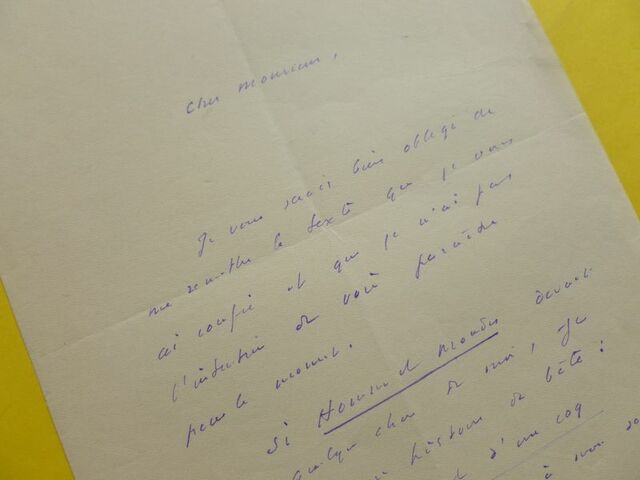 Cher monsieur,
Je vous serais bien obligé de
me remettre le texte que je vous
ai confié et que je n'ai pas
l'intention de voir paraître
pour le moment.
Si Hommes et Mondes devait
quelque chose de moi, je
histoire de bête :
d'un coq
à mon